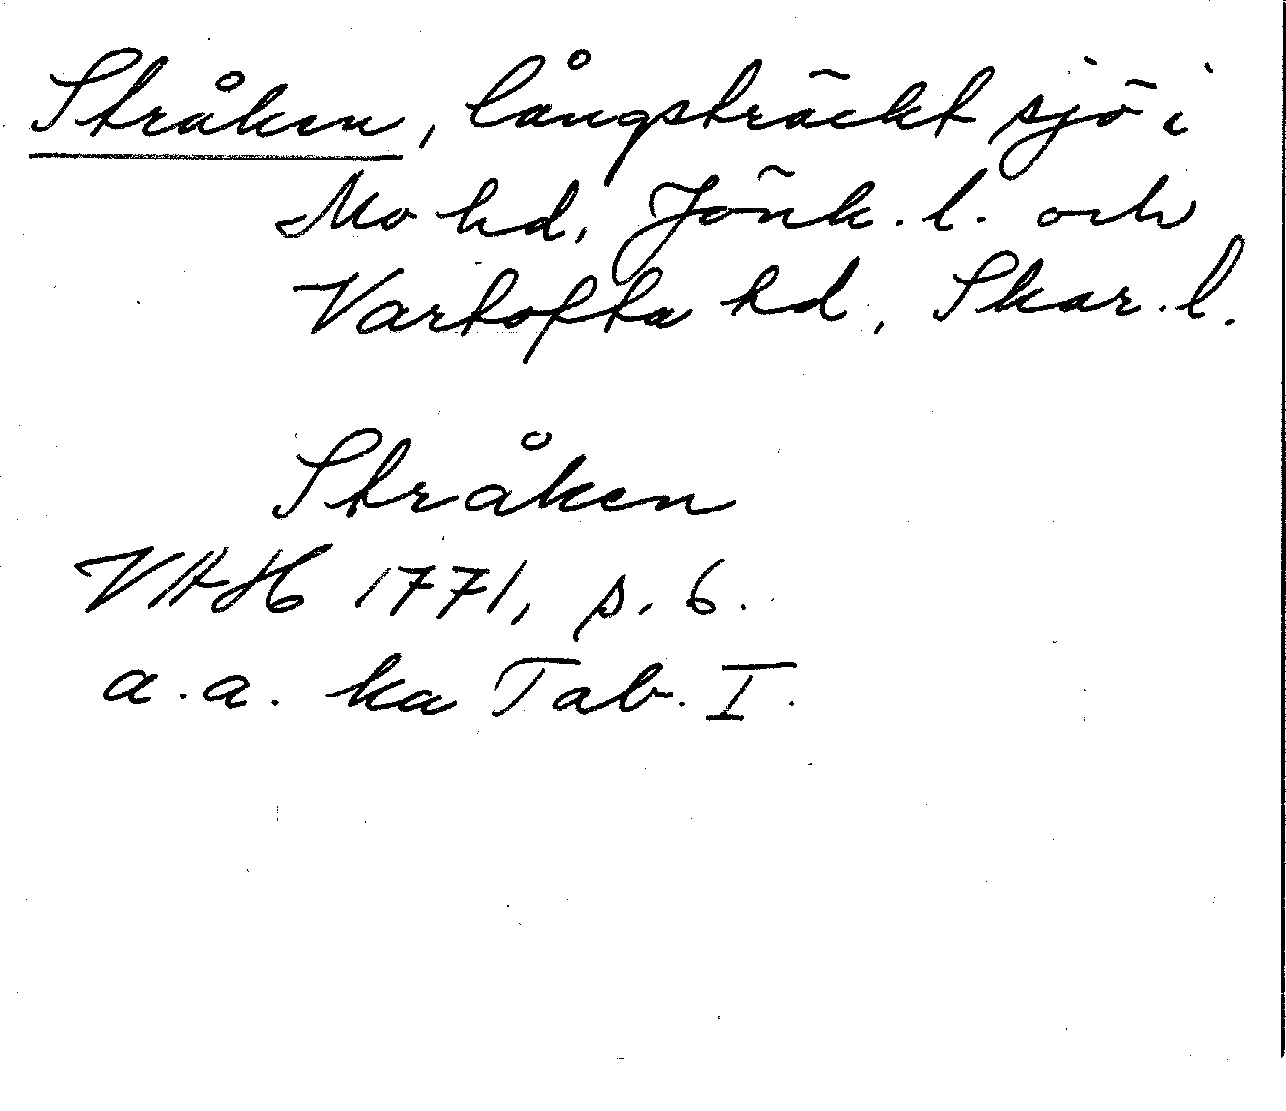 Stråken, långsträckt sjö i
Mo hd, Jönk. l. och
Vartofta hd, Skar. l.
Stråken
VAH 1771, s. 6.
a. a. ka Tab. I.